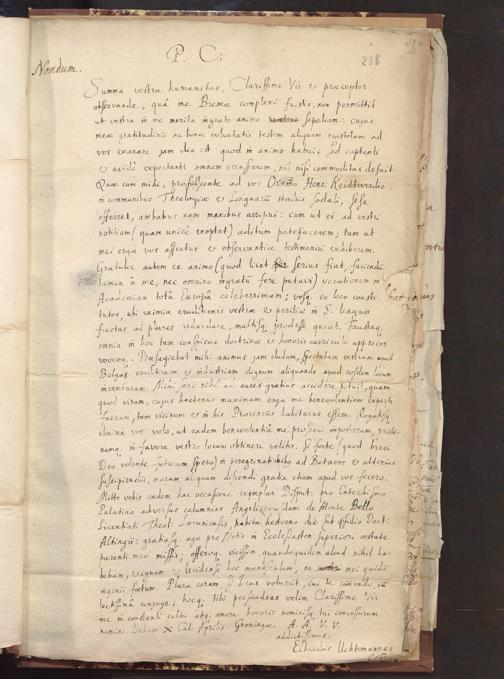 P. C:
238
Nondum.
Summa vestra humanitas, Clarissime Vir et præceptor
observande, quâ me Bremæ complexi fuistis, non permittit
ut vestra in me merita ingrato animo sepeliam: cujus
meæ gratitudinis ac bonæ voluntatis testem aliquam epistolam ad
vos exarare jam diu est quod in animo habui; sed captanti
et avidè expectanti omnem occasionem, nil nisi commoditas defuit.
Quæ cum mihi, proficiscente ad vos Henr:
in communibus Theologiæ et Linguarum studiis sodali, sese
offerret, ambabus eam manibus arripui: cum ut ei ad vestri
notitiam (quam unicè exoptat) aditum patefacerem; tum ut
mei erga vos affectus et observantiæ testimonium exhiberem.
Gratulor autem ex animo (quod licet serius fiat, faciendum
tamen à me, nec omnino ingratum fore putavi) vocationem in
Academiam totâ Europâ celeberrimam; vosq. eo loco consti-
tutos, ubi eximia eruditionis vestræ et peritiæ in S. linguis
fructus ad plures redundare, multisq. prodesse queat. Faustaq.
omnia in hoc tam conspicuo doctrinæ et honoris curriculo apprecor
voveoq. Præsagiebat mihi animus jam dudum, spectatam vestram apud
Belgas eruditionem et industriam dignum aliquando apud eosdem locum
inventuram. Nihil sane mihi ad aures gratius accidere potuit, quam
quod virum, cujus hactenus maximam erga me benevolentiam expertus
fueram, tam vicinum et in his Provinciis habiturus essem. Rogatosq.
obnixè vos volo, ut eadem benevolentiâ me prosequi
in favore vestro locum obtinere velitis. Si forte (quod brevi
Deo volente futurum spero) in peregrinationibus ad Batavos et ulterius
suscipiendis, novam aliquam discendi gratia etiam apud vos fecero.
Mitto vobis eadem hac occasione exemplar Disput. pro Catechismo
Palatino adversus calumnias de Monte Bello
Licentiati Theol. Lovaniensis, habitæ hesterno die sub præsidio Doct:
Altingii: gratiasq. ago pro Notis in Ecclesiasten superiori æstate
parenti meo missis; offeroq. vicissim, quandoquidem aliud nihil ha-
bebam, exiguum et levidense hoc munusculum, ne mei quidem
ingenii fœtum. Plura coram, si Deus voluerit, cui te commendo, cum
lectissimâ conjuge; hocq. tibi persuadeas velim Clarissime Vir
me in constanti cultu atq. amore honoris nominisq. tui
X Cal: Aprilis, Groningæ. A. A. V. V.
addictissimus.